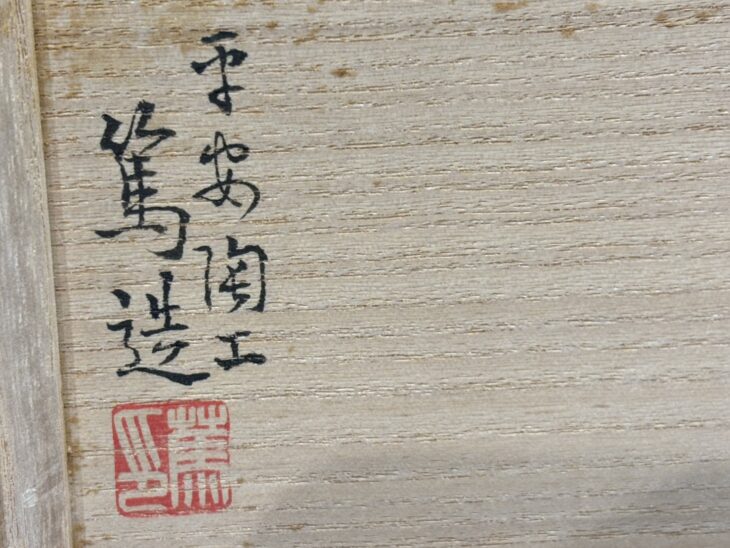 平安陶工
篤造